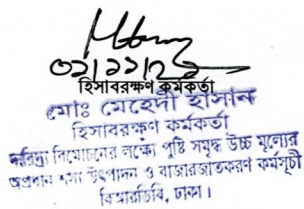 ০১/১১/২৫
হিসাবরক্ষণ কর্মকর্তা
মোঃ মেহেদী হাসান
হিসাবরক্ষণ কর্মকর্তা
দারিদ্র্য বিমোচনের লক্ষ্যে পুষ্টি সমৃদ্ধ উচ্চ মূল্যের
অপ্রধান শস্য উৎপাদন ও বাজারজাতকরণ কর্মসূচী
বিআরডিবি, ঢাকা।